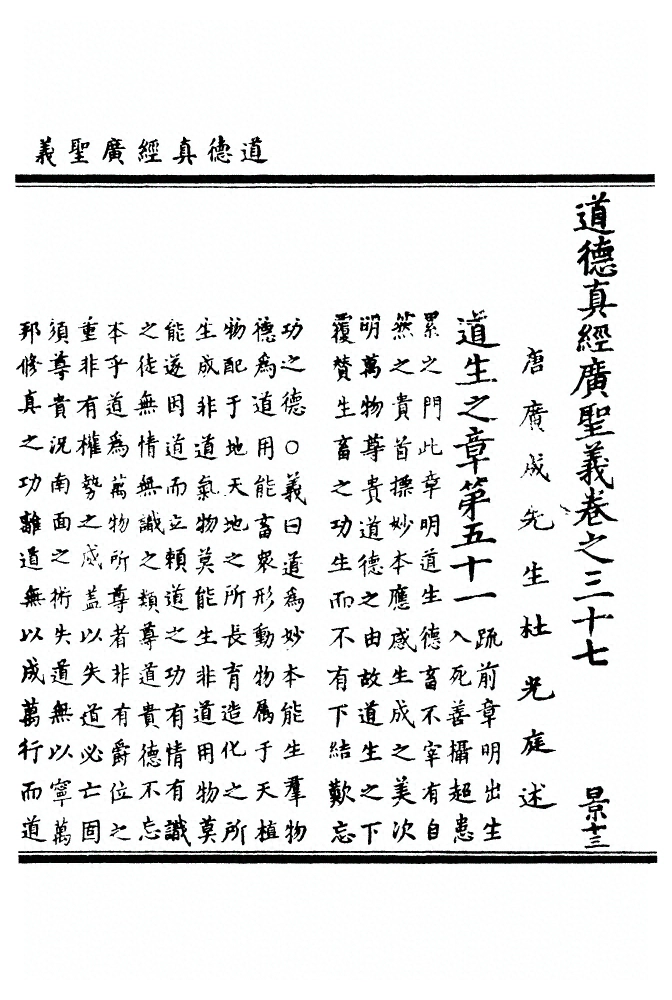 道德真經廣聖義
道德真經廣聖義卷之三十七 景十三
唐廣成先生杜光庭述
道生之章第五十一
疏前章明出生
入死善攝超患
累之門此章明道生德畜不宰有自
然之貴首摽妙本應感生成之美次
明萬物尊貴道德之由故道生之下
覆贊生畜之功生而不有下結歎忘
功之德○義曰道為妙本能生羣物
德為道用能畜衆形動物屬于天植
物配于地天地之所長育造化之所
生成非道氣物莫能生非道用物莫
能遂因道而立賴道之功有情有識
之徒無情無識之類尊道貴德不忘
本乎道為萬物所尊者非有爵位之
重非有權勢之威蓋以失道必亡固
須尊貴況南面之術失道無以寧萬
邦修真之功離道無以成萬行而道